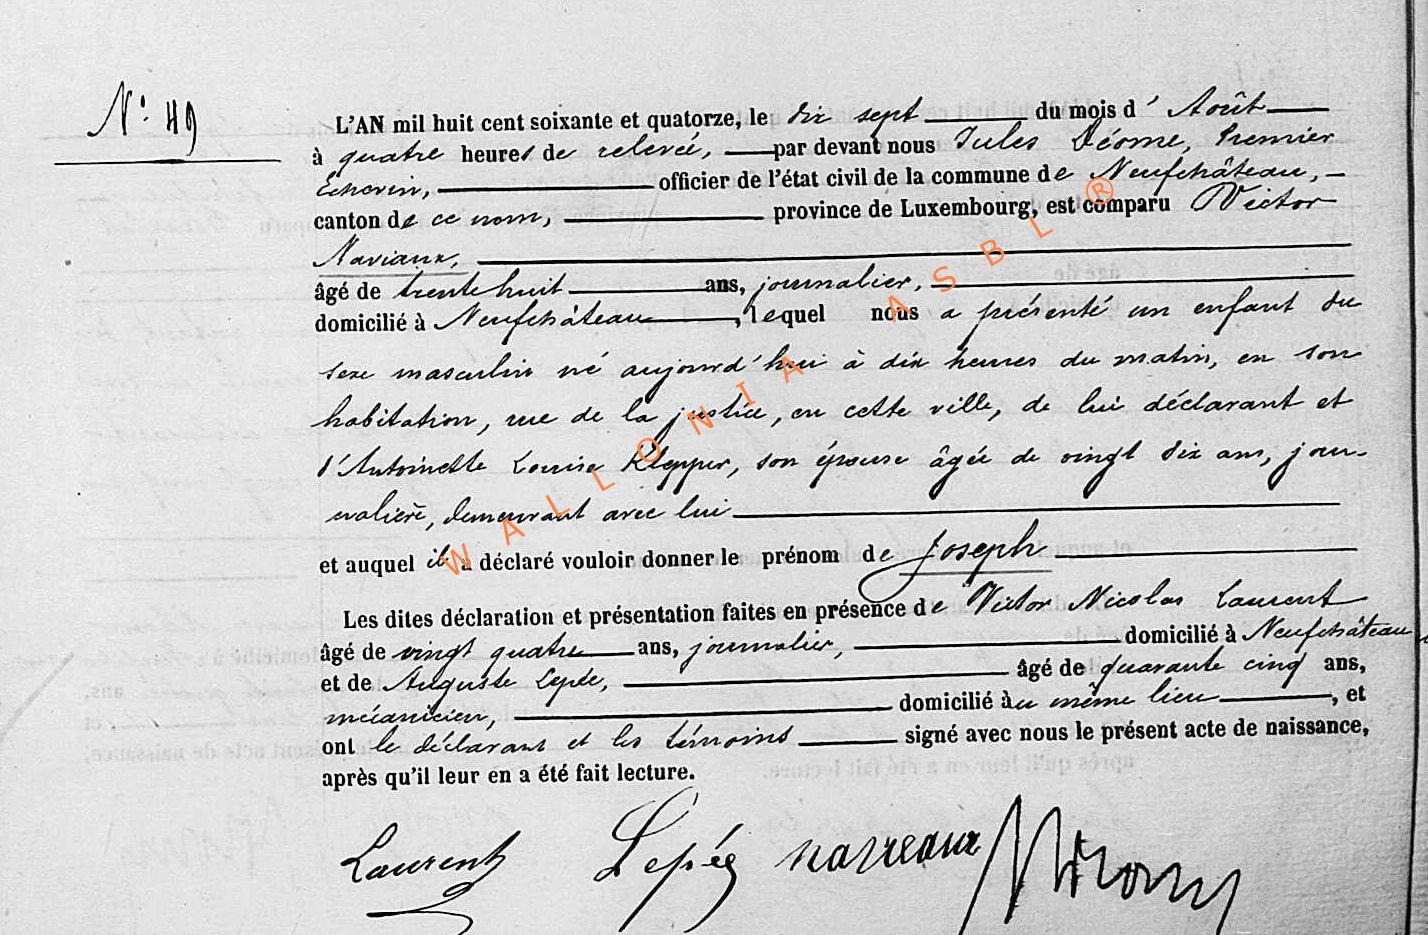 N° 49
L'AN mil huit cent soixante et quatorze, le dix sept du mois d' Août
à quatre heures de relevée, par devant nous Jules Déome, Premier
Echevin, officier de l'état civil de la commune de Neufchâteau,
canton de ce nom, province de Luxembourg, est comparu Victor
Naviaux,
âgé de trente huit ans, journalier,
domicilié à Neufchâteau, lequel nous a présenté un enfant du
sexe masculin né aujourd'hui à dix heures du matin, en son
habitation, rue de la justice, en cette ville, de lui déclarant et
d'Antoinette Louise Klepper, son épouse âgée de vingt six ans, jour-
nalière, demeurant avec lui
et auquel il a déclaré vouloir donner le prénom de Joseph
Les dites déclaration et présentation faites en présence de Victor Nicolas Laurent
âgé de vingt quatre ans, journalier, domicilié à Neufchâteau
et de Auguste Lepée, âgé de quarante cinq ans,
mécanicien, domicilié au même lieu, et
ont le déclarant et les témoins signé avec nous le présent acte de naissance,
après qu'il leur en a été fait lecture.
Laurent Lepée
WALLONIA ASBL ®